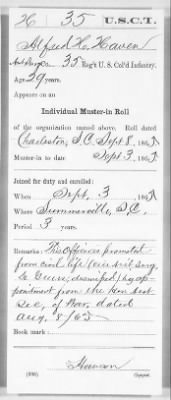 H 35 U.S.C.T.
Alfred H. Haven
35 Reg't U.S. Col'd Infantry.
Age 29 years.
Appears on an
Individual Muster-in Roll
of the organization named above. Roll dated
Charleston, S.C. Sept 8, 1865
Muster-in to date Sept 3, 1865
Joined for duty and enrolled:
When Sept, 3 1865
Where Summerville, S.C.
Period 3 years.
Remarks: This Officer promoted
from civil life
by ap-
pointment from the Hon Sect
of War, dated
Aug, 8/65
Book mark:
(356) Copyist.